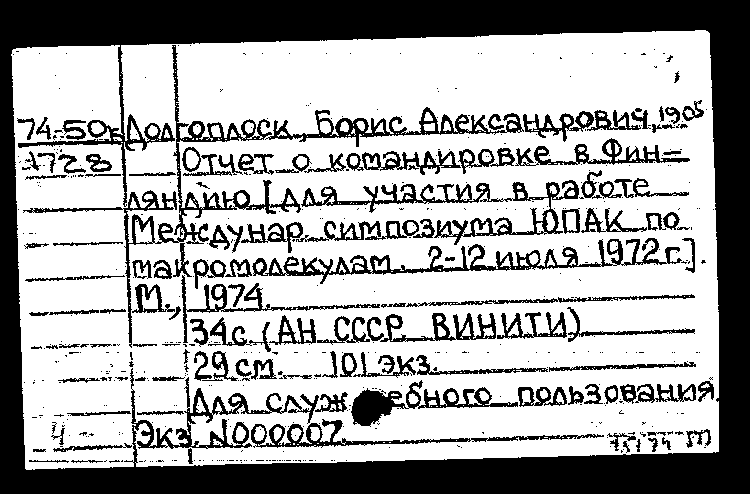 74-50к Долгоплоск, Борис Александрович, 1905
1728 Отчет о командировке в Фин=
ляндию [для участия в работе
Междунар симпозиума ЮПАК по
макромолекулам. 2-12 июля 1972 г.].
М., 1974.
34 с. (АН СССР. ВИНИТИ)
29 см. 101 экз.
Для служебного пользования.
4 - Экз. N000007.